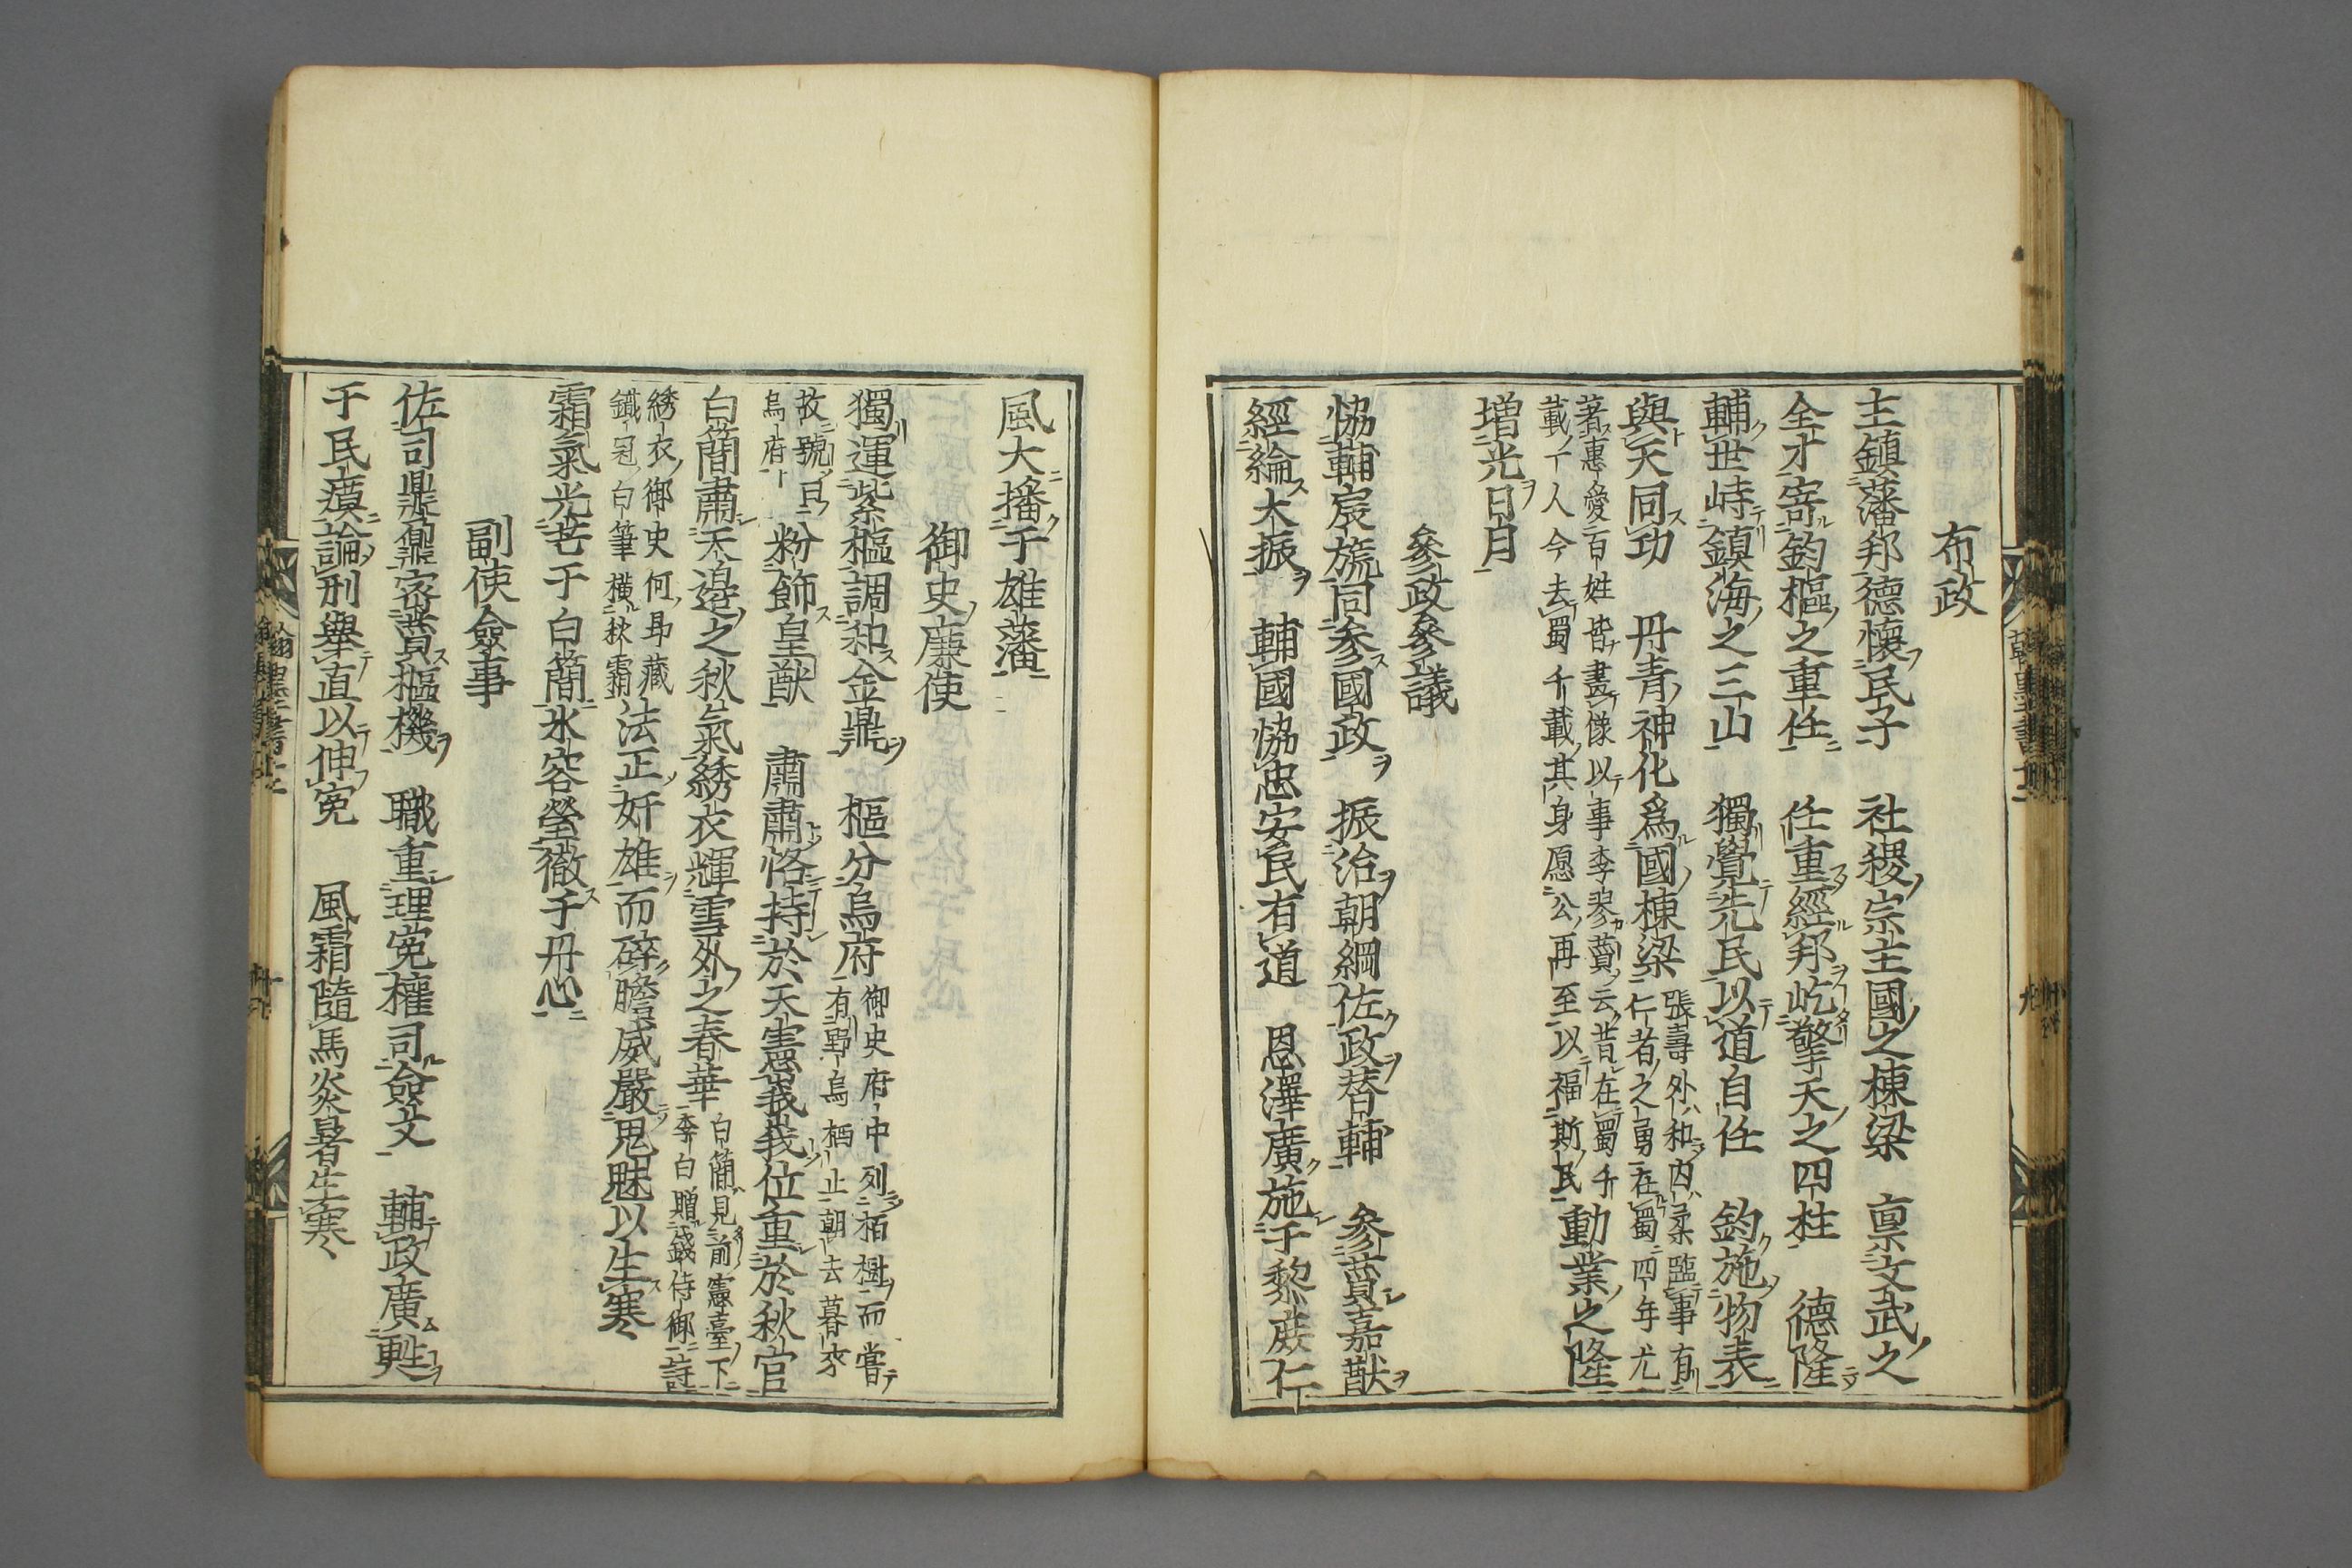 布政
主鎮藩邦德懷民子　社稷宗主國之棟梁　稟文武之
全才寄鈞樞之重任　任重經邦屹擎天之四柱　德隆
輔世峙鎮海之三山　獨覺先民以道自任　鈞施物表
與天同功　丹青神化爲國棟梁 張壽外和内柔臨事有
仁者之勇在蜀四年尤
著惠愛百姓皆畫像以事李翏賛云昔在蜀千
載一人今去蜀千載其身愿公再至以福斯民 動業之隆
増光日月
參政參議
恊輔宸旒同參國政　振治朝綱佐政替輔　參賛嘉猷
經綸大振　輔國恊忠安民有道　恩澤廣施于黎庶仁
風大播于雄藩
御史廉使
獨運紫樞調和金鼎　樞分烏府 御史府中列栢樹而嘗
有野烏栖止朝去暮來
故號曰
烏府 粉飾皇猷　肅肅恪持於天憲峩峩位重於秋官
白簡肅天邉之秋氣綉衣輝雪外之春華 白簡見前憲臺下
李白贈錢侍御詩
綉衣御史何昻藏
鐵冠白筆橫秋霜 法正奸雄而碎膽威嚴鬼魅以生寒
霜氣光芒于白簡氷容瑩徹于丹心
副使僉事
佐司鼎鼐密賛樞機　職重理寃權司僉文　輔政廣甦
于民瘼論刑舉直以伸寃　風霜隨馬炎暑生寒
翰墨書二